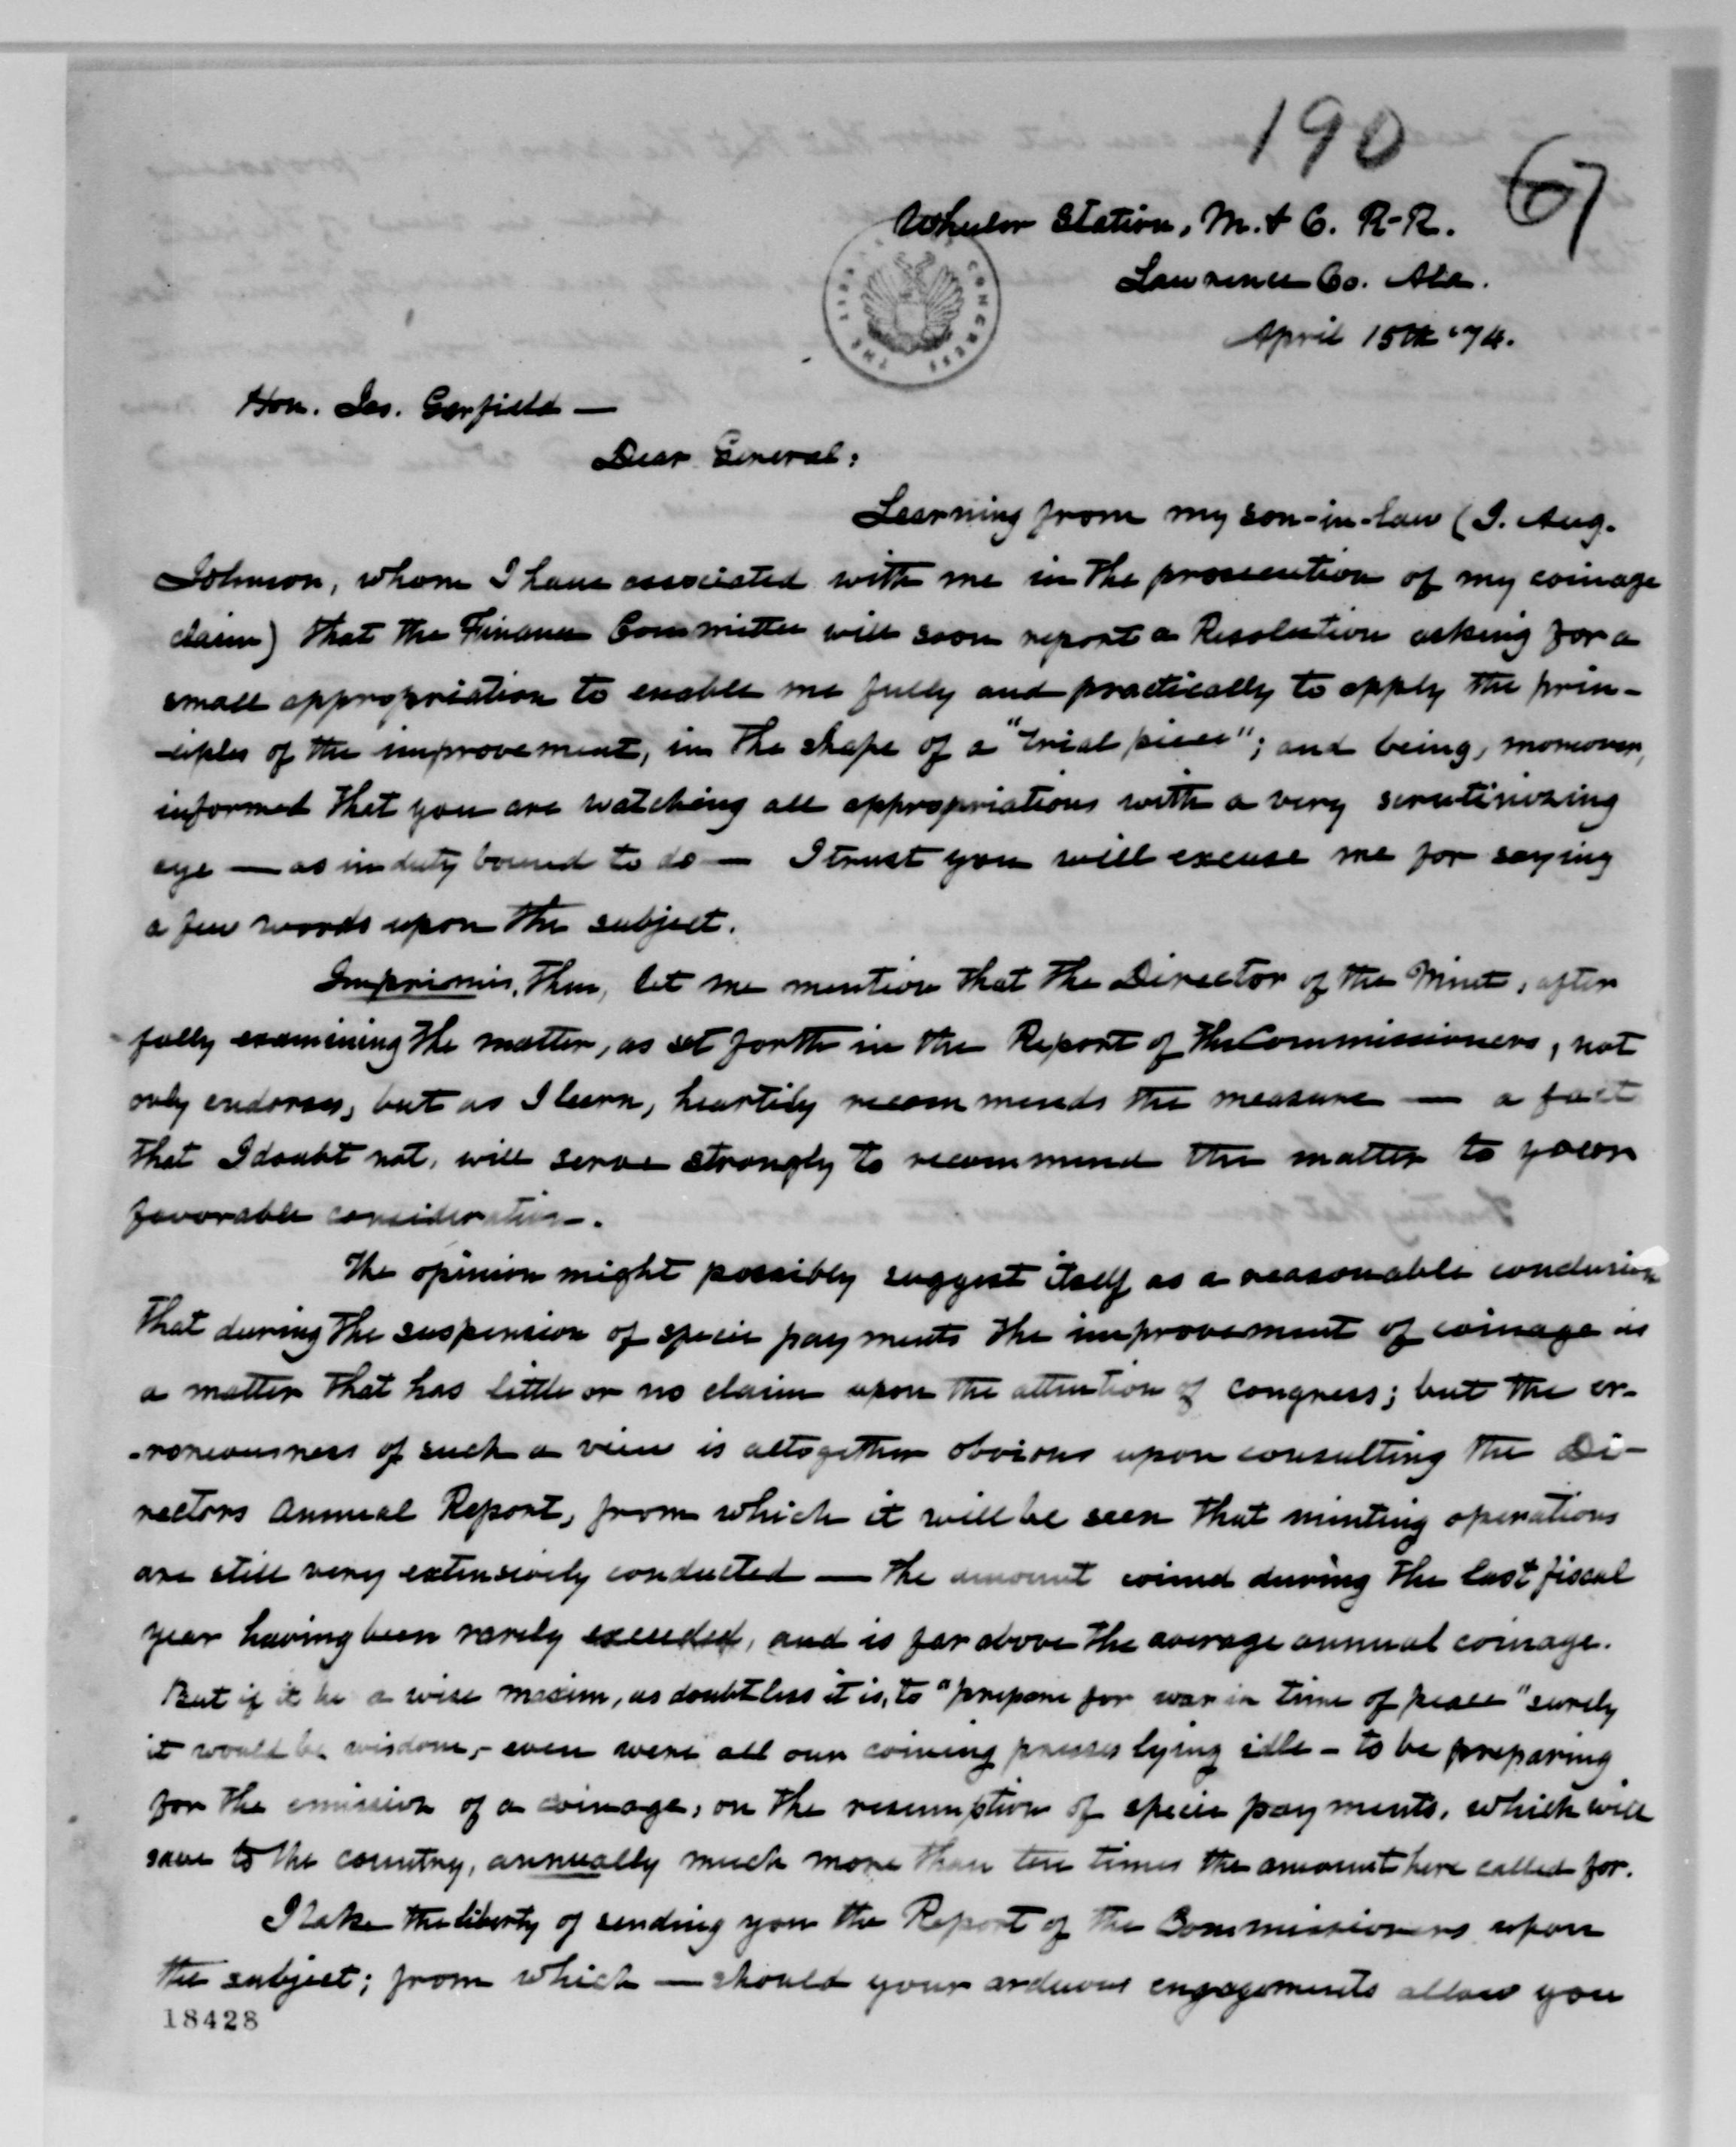 190
67
Wheeler Station, M. & C. R-R.
Lawrence Co. Ala.
April 15th '74.
THE LIBR CONGRESS
Hon. Jas. Garfield —
Dear General:
Learning from my son-in-law (J. Aug.
Johnson, whom I have associated with me in the prosecution of my coinage
claim) that the Finance Committee will soon report a Resolution asking for a
small appropriation to enable me fully and practically to apply the prin-
-ciples of the improvement, in the shape of a "trial piece"; and being, moreover,
informed that you are watching all appropriations with a very scrutinizing
eye — as in duty bound to do — I trust you will excuse me for saying
a few words upon the subject.
Imprimis, then, let me mention that the Director of the Mint, after
fully examining the matter, as set forth in the Report of the Commissioners, not
only endorses, but as I learn, heartily recommends the measure — a fact
that I doubt not, will serve strongly to recommend the matter to your
favorable consideration.
The opinion might possibly suggest itself as a reasonable conclusion
that during the suspension of specie payments the improvement of coinage is
a matter that has little or no claim upon the attention of Congress; but the er-
-roneousness of such a view is altogether obvious upon consulting the Di-
rectors Annual Report, from which it will be seen that minting operations
are still very extensively conducted — the amount coined during the last fiscal
year having been rarely exceeded, and is far above the average annual coinage.
But if it be a wise maxim, as doubtless it is, to "prepare for war in time of peace" surely
it would be wisdom, - even were all our coining presses lying idle - to be preparing
for the emission of a coinage, on the resumption of specie payments, which will
save to the country, annually much more than ten times the amount here called for.
I take the liberty of sending you the Report of the Commissioners upon
the subject; from which — should your arduous engagements allow you
18428